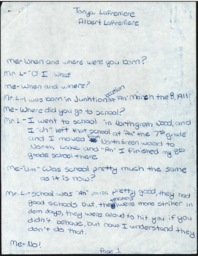 Tanya LaFreniere
Albert LaFreniere
Me: When and where were you born?
Mr. L - "O" I what
me - when and where?
Mr. L - I was born in Junktion "Ah" March the 8,
Me - Where did you go to school?
Mr. L - I went to school in Northgrain Wood, and
I "uh" left that school at "Ah" the 7th grade
and I moved North from Wood to
North Lake and "Ah" I finished my 8th
grade school there.
Me - "Um" Was school pretty much the same
as it is now?
Mr. L - School was "Ah" pretty good, they had
good schools but they were more stricter in
dem days, they were aloud to hit you if you
didn't behave, but now I understand they
don't do that.
Me - No!
Page 1